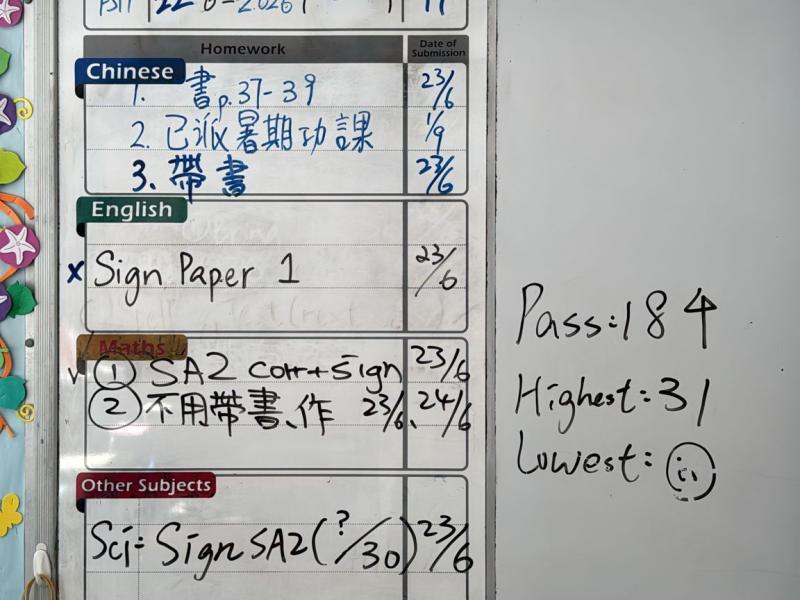 22 6 - 2026
Homework
Date of Submission
Chinese
1. 書p.37-39 23/6
2. 已派暑期功課 1/9
3. 帶書 23/6
English
x Sign Paper 1 23/6
Maths
① SA2 corr+sign 23/6
② 不用帶書、作 23/6、24/6
Other Subjects
Sci= Sign SA2 (?/30) 23/6
Pass:184
Highest:31
Lowest: